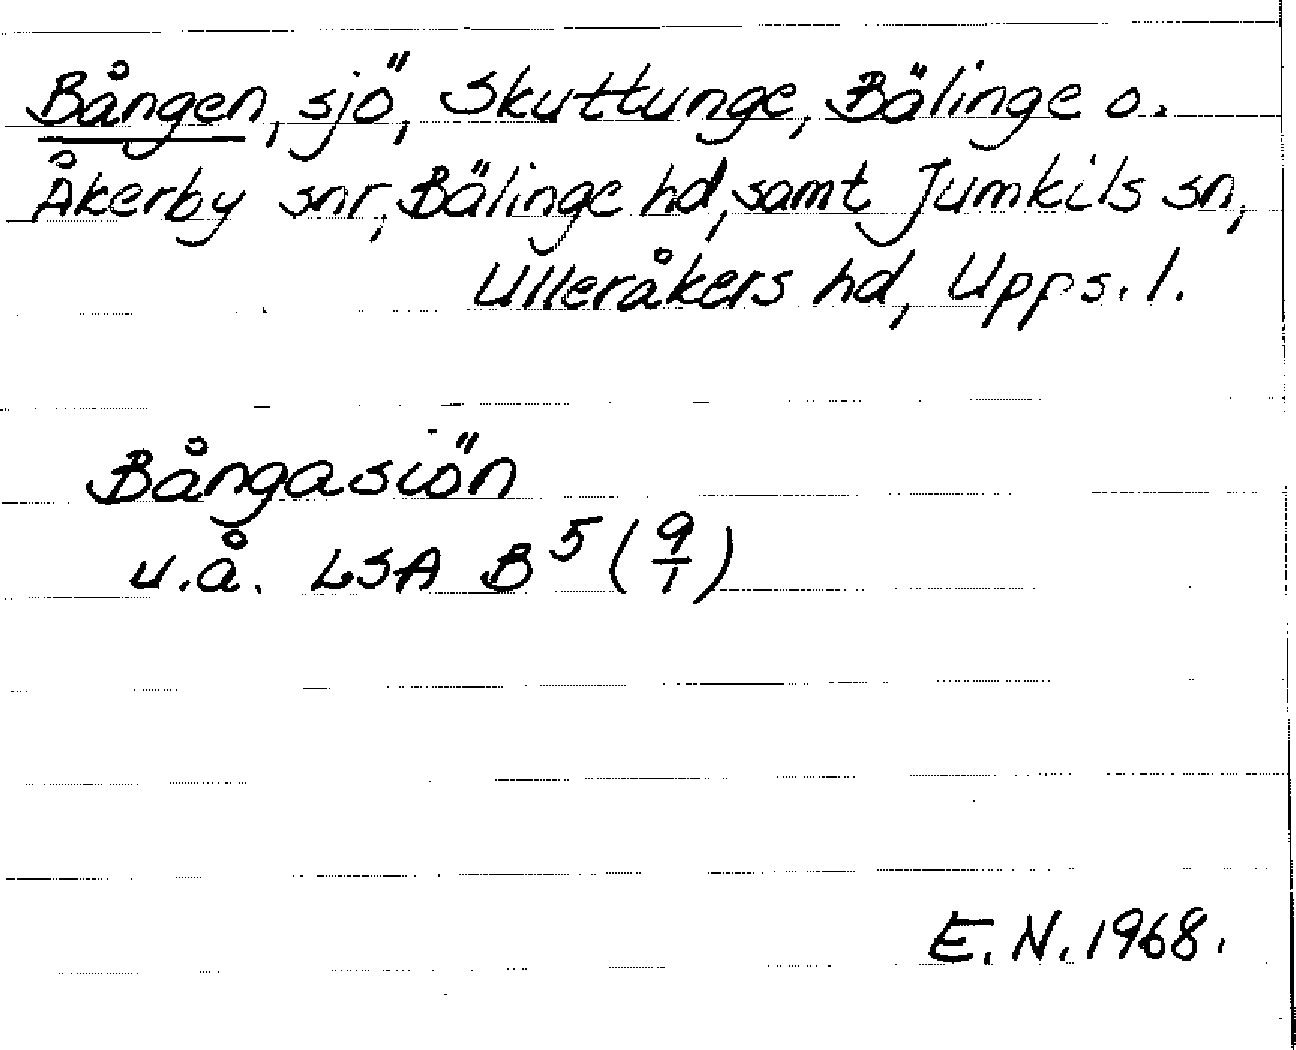 Bången, sjö, Skuttunge, Bälinge o.
Åkerby snr, Bälinge hd, samt Jumkils sn,
Ulleråkers hd, Upps. l.
Bångasiön
u.å. LSA B 5 (9/1)
E. N. 1968.